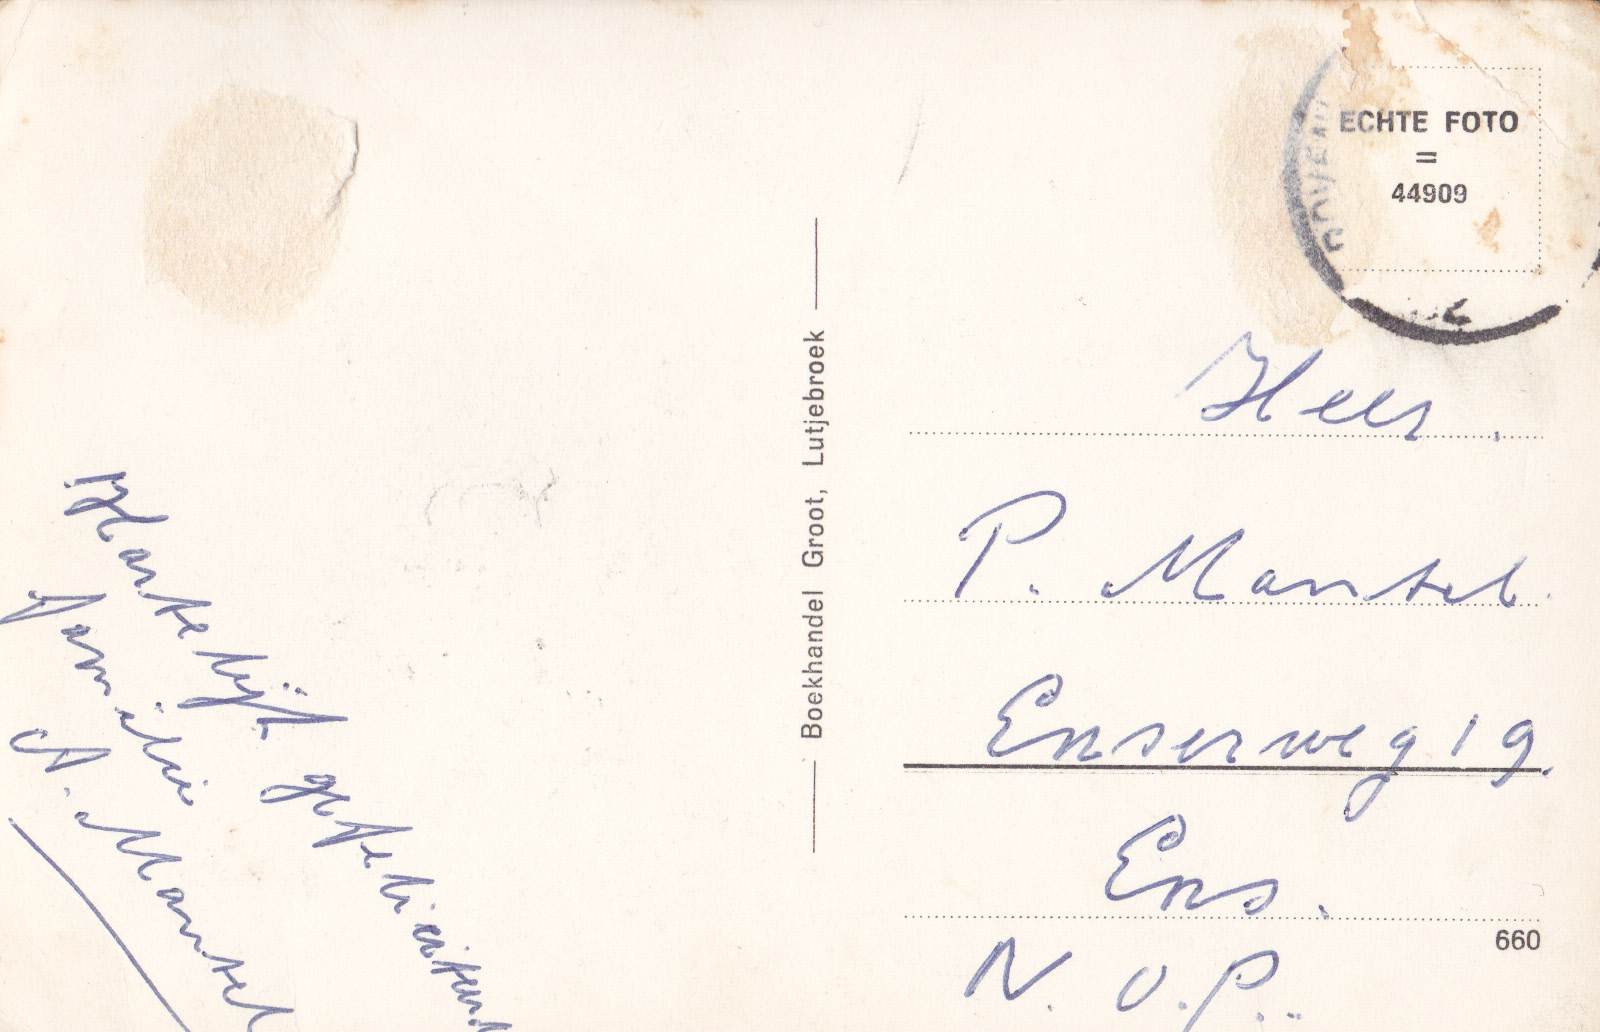 ECHTE FOTO
=
44909
Boekhandel Groot, Lutjebroek
Heer.
P. Mantel.
Enserweg 19.
Ens.
N.O.P.
660
Hartelijk gefeliciteerd
Familie
N. Mantel